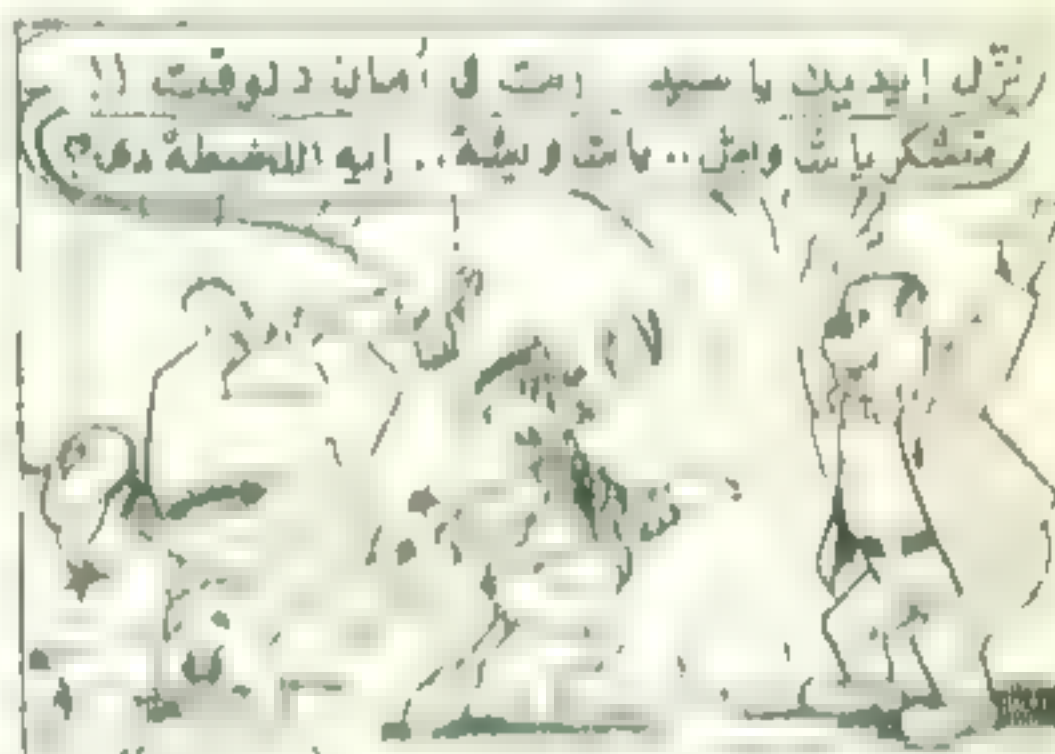 نزل إيديك يا سيد إنت ف أمان دلوقت !!
متشكر يا شاويش .. يا شاويش .. إيه اللخبطة دي؟